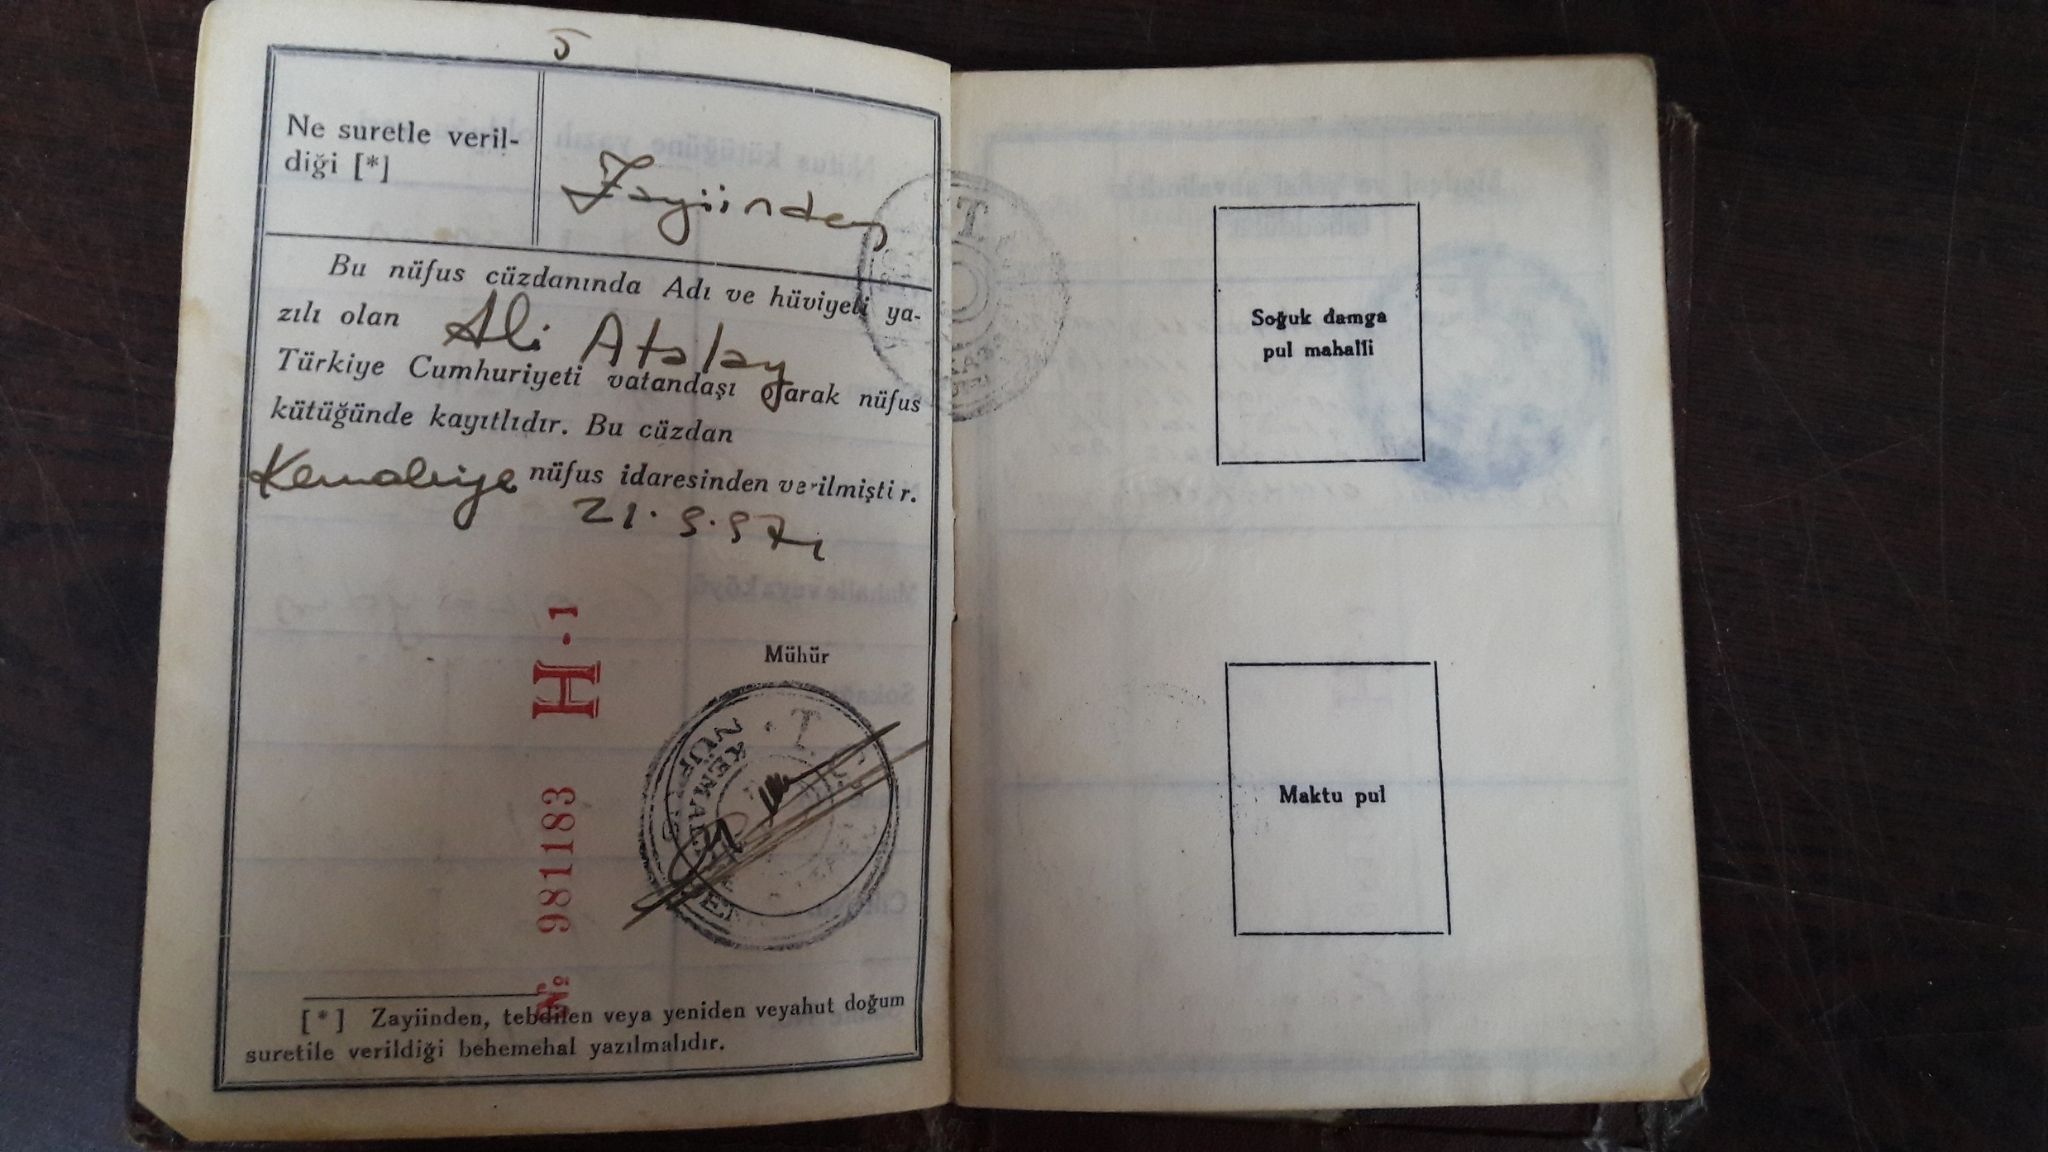 5
Ne suretle veril-
diği [*]
Zayiinden
Bu nüfus cüzdanında Adı ve hüviyeti ya-
zılı olan Ali Atalay
Türkiye Cumhuriyeti vatandaşı olarak nüfus
kütüğünde kayıtlıdır. Bu cüzdan
Kemaliye nüfus idaresinden verilmiştir.
21.9.971
Mühür
T.
KEMAL
NÜFUS
№ 981183 H.1
[*] Zayiinden, tebdilen veya yeniden veyahut doğum
suretile verildiği behemehal yazılmalıdır.
T.
Soğuk damga
pul mahalli
Maktu pul